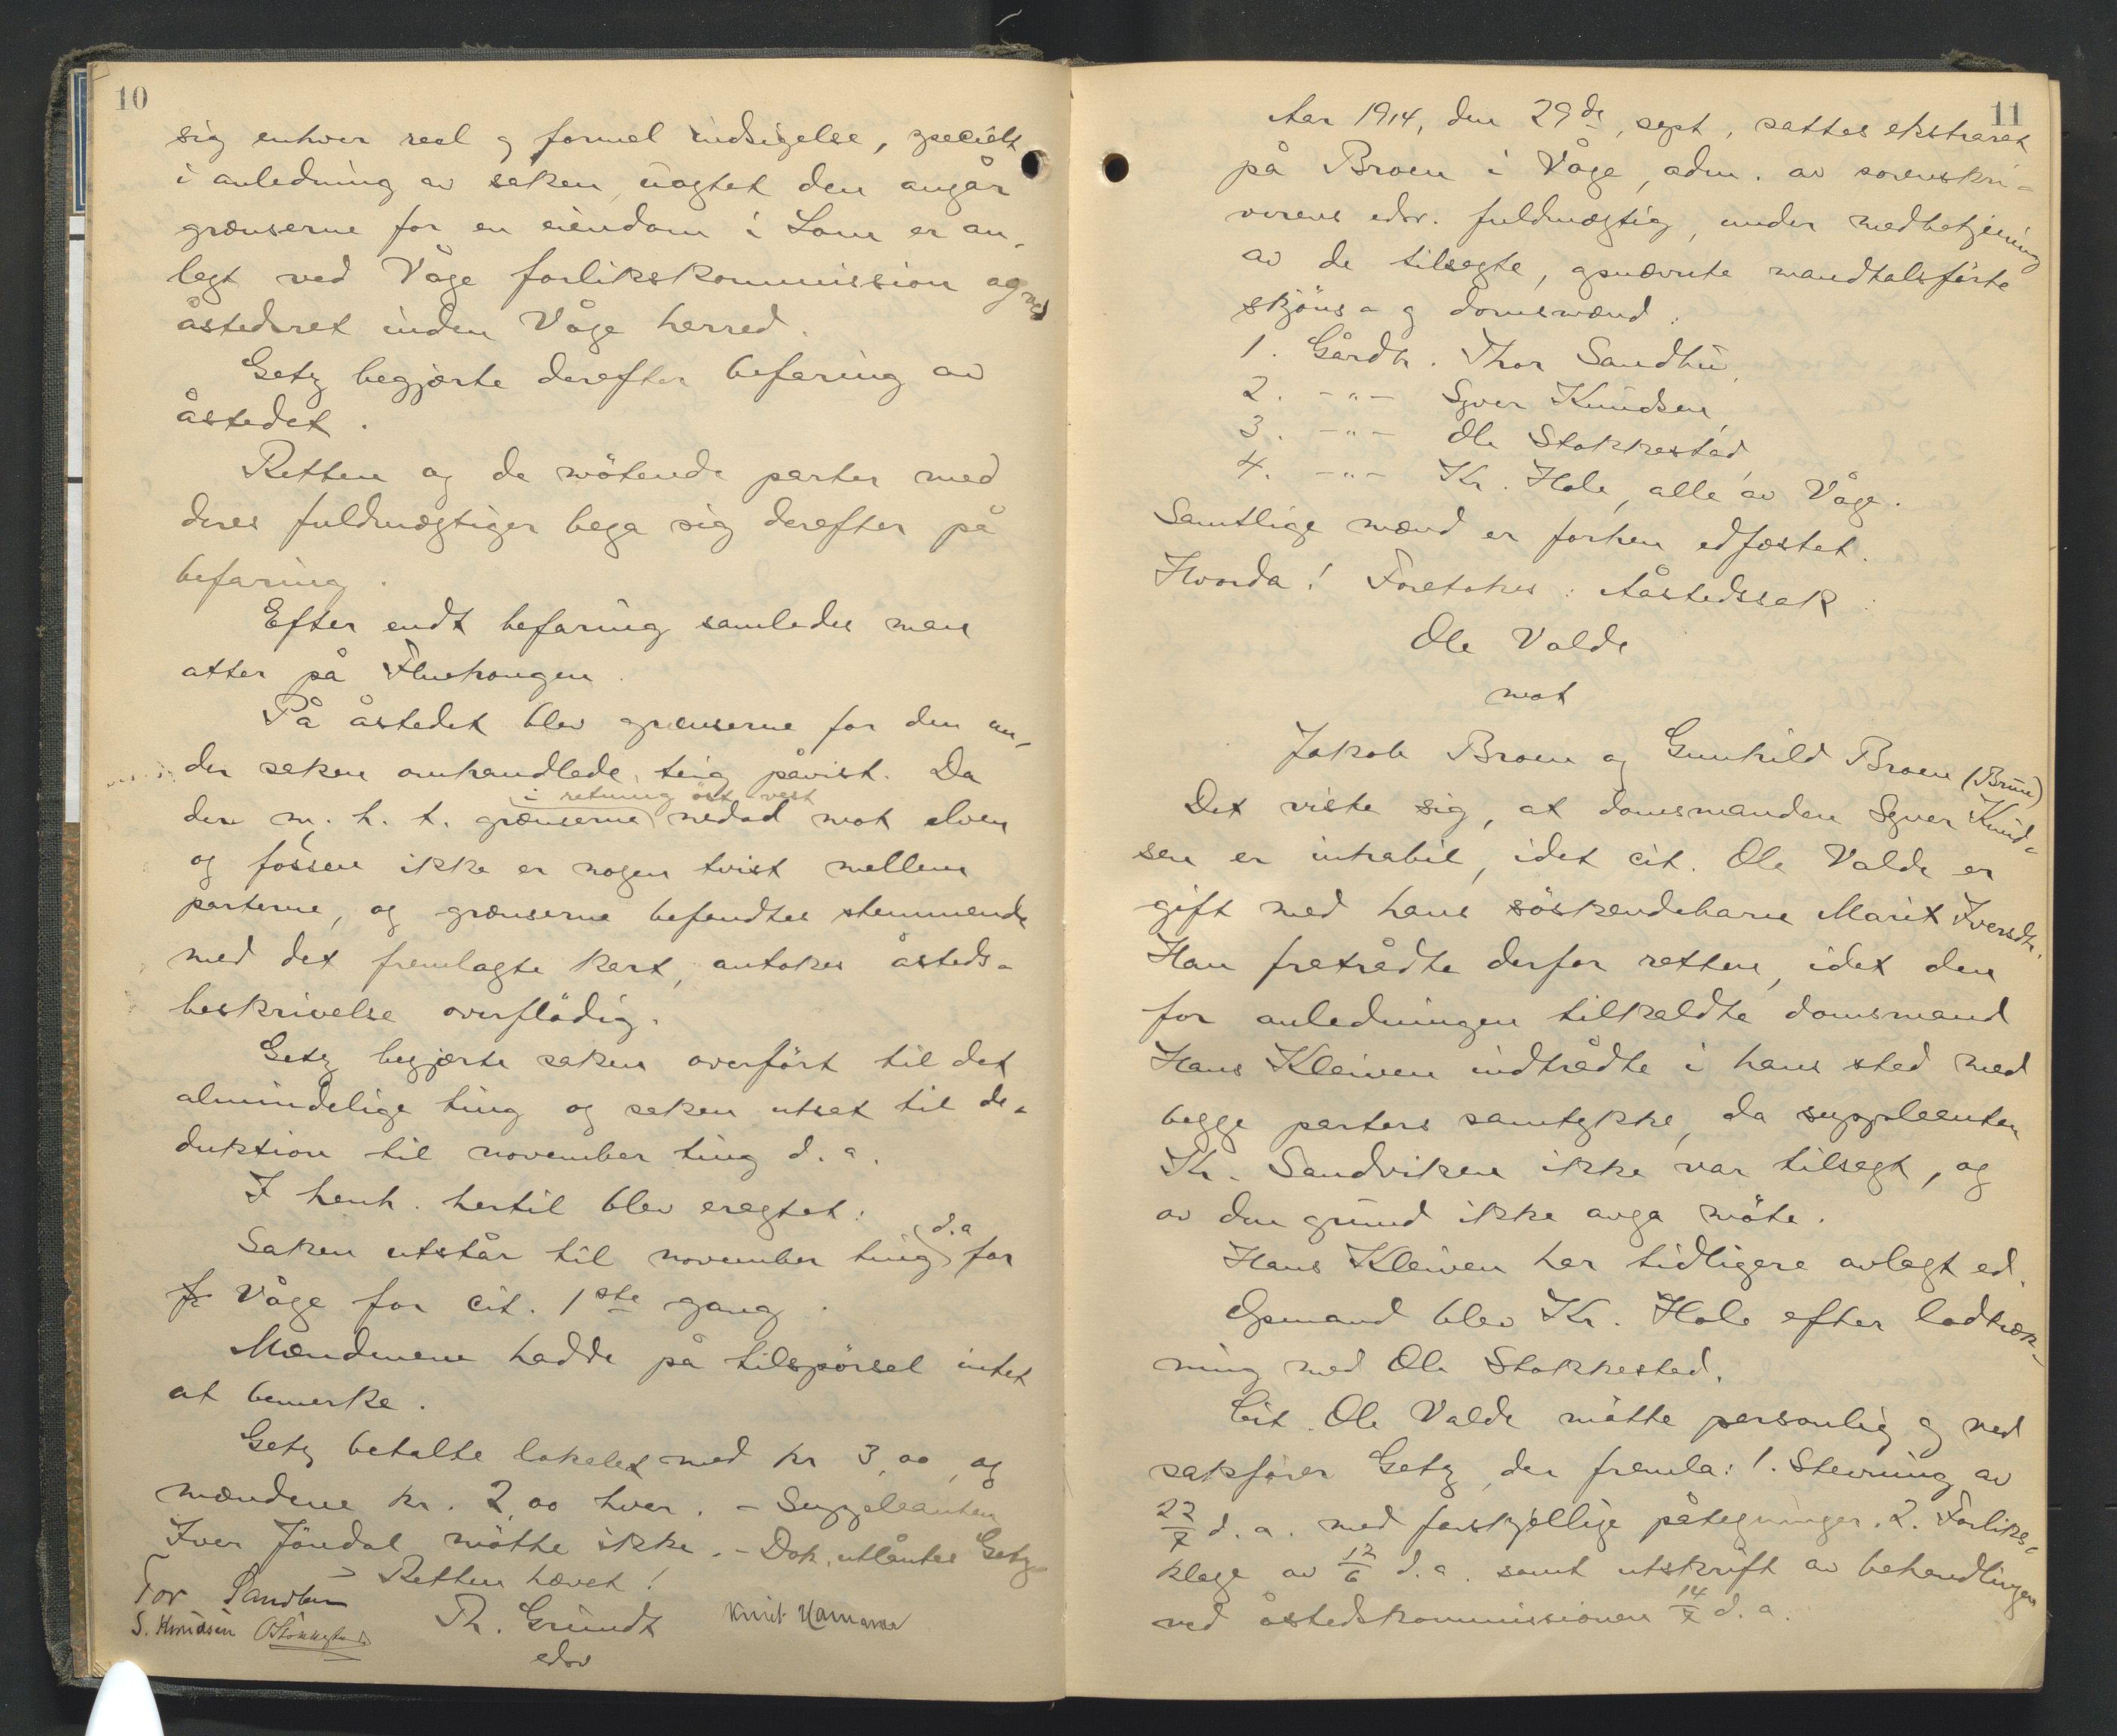 10
sig enhver reel og formel indsigelse, specielt
i anledning av saken, uagtet den angår
grænserne for en eiendom i Lom er an-
lagt ved Våge forlikskommission og ved
åstedsret inden Våge herred.
Getz begjærte derefter befaring av
åstedet.
Retten og de mötende parter med
deres fuldmægtiger bega sig derefter på
befaring.
Efter endt befaring samledes man
atter på
På åstedet blev grænserne for den un-
der saken omhandlede teig påvist. Da
i retning öst-vest
der m. h. t. grænserne nedad mot elven
og fossen ikke er nogen tvist mellem
parterne, og grænserne befandtes stemmende
med det fremlagte kart, antokes åsteds-
beskrivelse overflödig.
Getz begjærte saken overfört til det
almindelige ting og saken utsat til de-
duktion til november ting d. a.
I henh. hertil blev eragtet:
Saken utstår til november ting d.a for
fr Våge for cit. 1ste gang.
Mændenene hadde på tilspörsel intet
at bemerke.
Getz betalte lokalet med kr 3,00, og
mændene kr. 2,00 hver. - Suppleanten
Iver Jöndal mötte ikke. - Dok. utlåntes Getz
Retten hævet!
Tor Sandbu
Th. Grundt
Knut
S. Knudsen O Stokkestad
edsv
11
Aar 1914, den 29de sept, sattes ekstraret
på Broen i Våge, adm. av sorenskri-
verens edsv. fuldmægtig, under medbetjening
av de tilsagte, opnævnte mandtalsförte
skjöns- og domsmænd.
1. Gårdbr. Thor Sandbu,
2. -"- Syver Knudsen,
3. -"- Ole Stokkestad,
4. -"- Kr. Hole, alle av Våge.
Samtlige mænd er forhen edfæstet.
Hvorda! Foretokes: Aåstedssak:
Ole Valde
mot
Jakob Broen og Gunhild Broen (Brun)
Det viste sig, at domsmanden Syver Knud-
sen er inhabil, idet cit. Ole Valde er
gift med hans söskendebarn Marit Iversdtr.
Han fratrådte derfor retten, idet den
for anledningen tilkaldte domsmand
Hans Kleiven indtrådte i hans sted med
begge parters samtykke, da suppleanten
Kr. Sandviken ikke var tilsagt, og
av den grund ikke avga möte.
Hans Kleiven har tidligere avlagt ed.
Opmand blev Kr. Hole efter lodtræk-
ning med Ole Stokkestad.
Cit. Ole Valde mötte personlig og ved
sakförer Getz, der fremla: 1. Stevning av
22/7 d. a. med forskjellige påtegninger. 2. Forliks-
klage av 12/6 d. a. samt utskrift av behandlingen
ved åstedskommissionen 14/7 d. a.